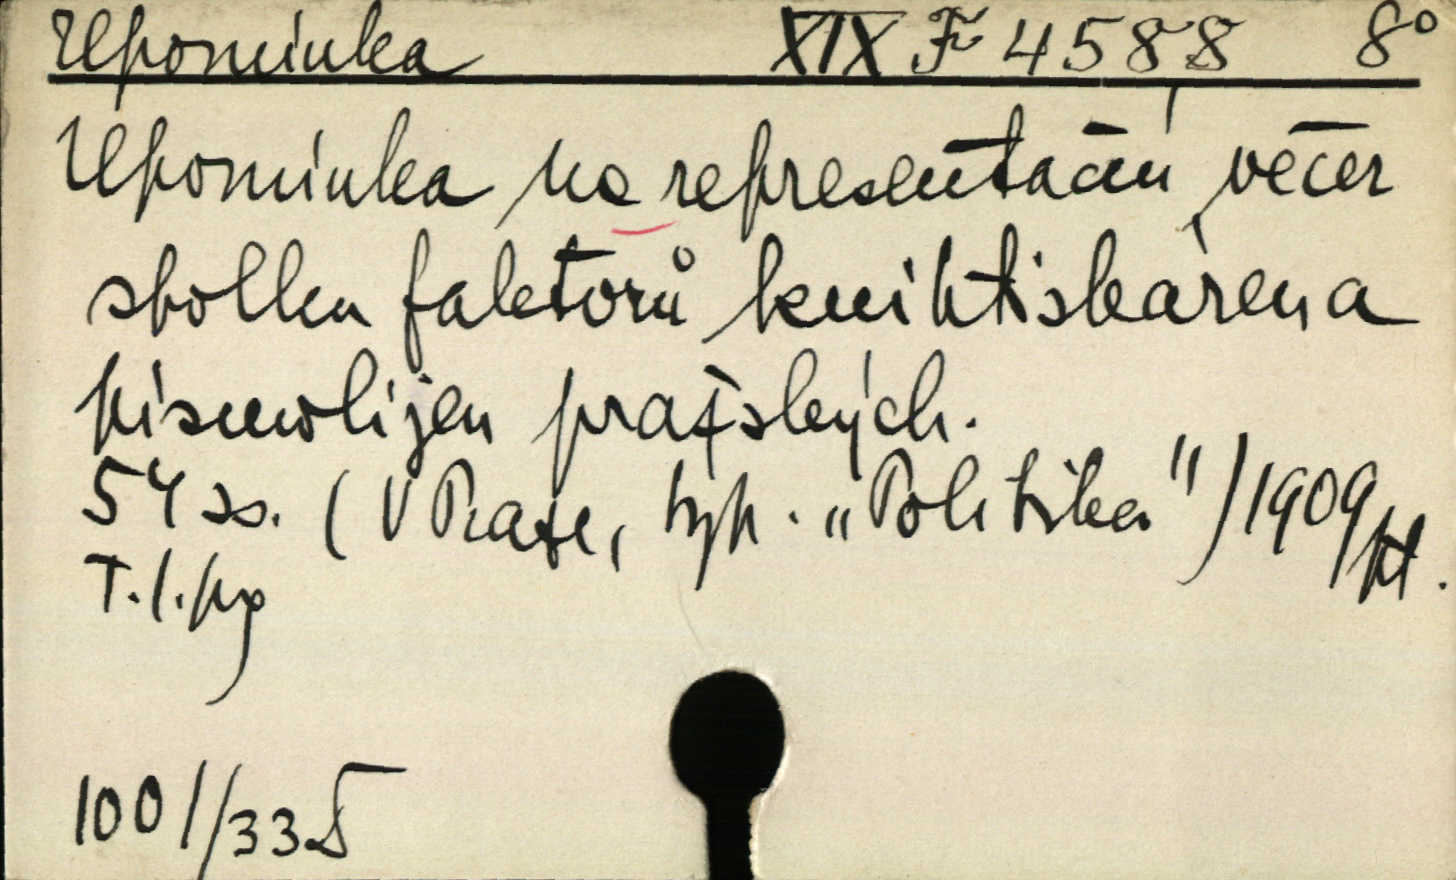 Upomínka XIX F 4588 8°
Upomínka na representační večer
spolku faktorů knihtiskáren a
písmolijen pražských.
54 ss. (V Praze, typ. „Politika") 1909
T. l.
1001/33